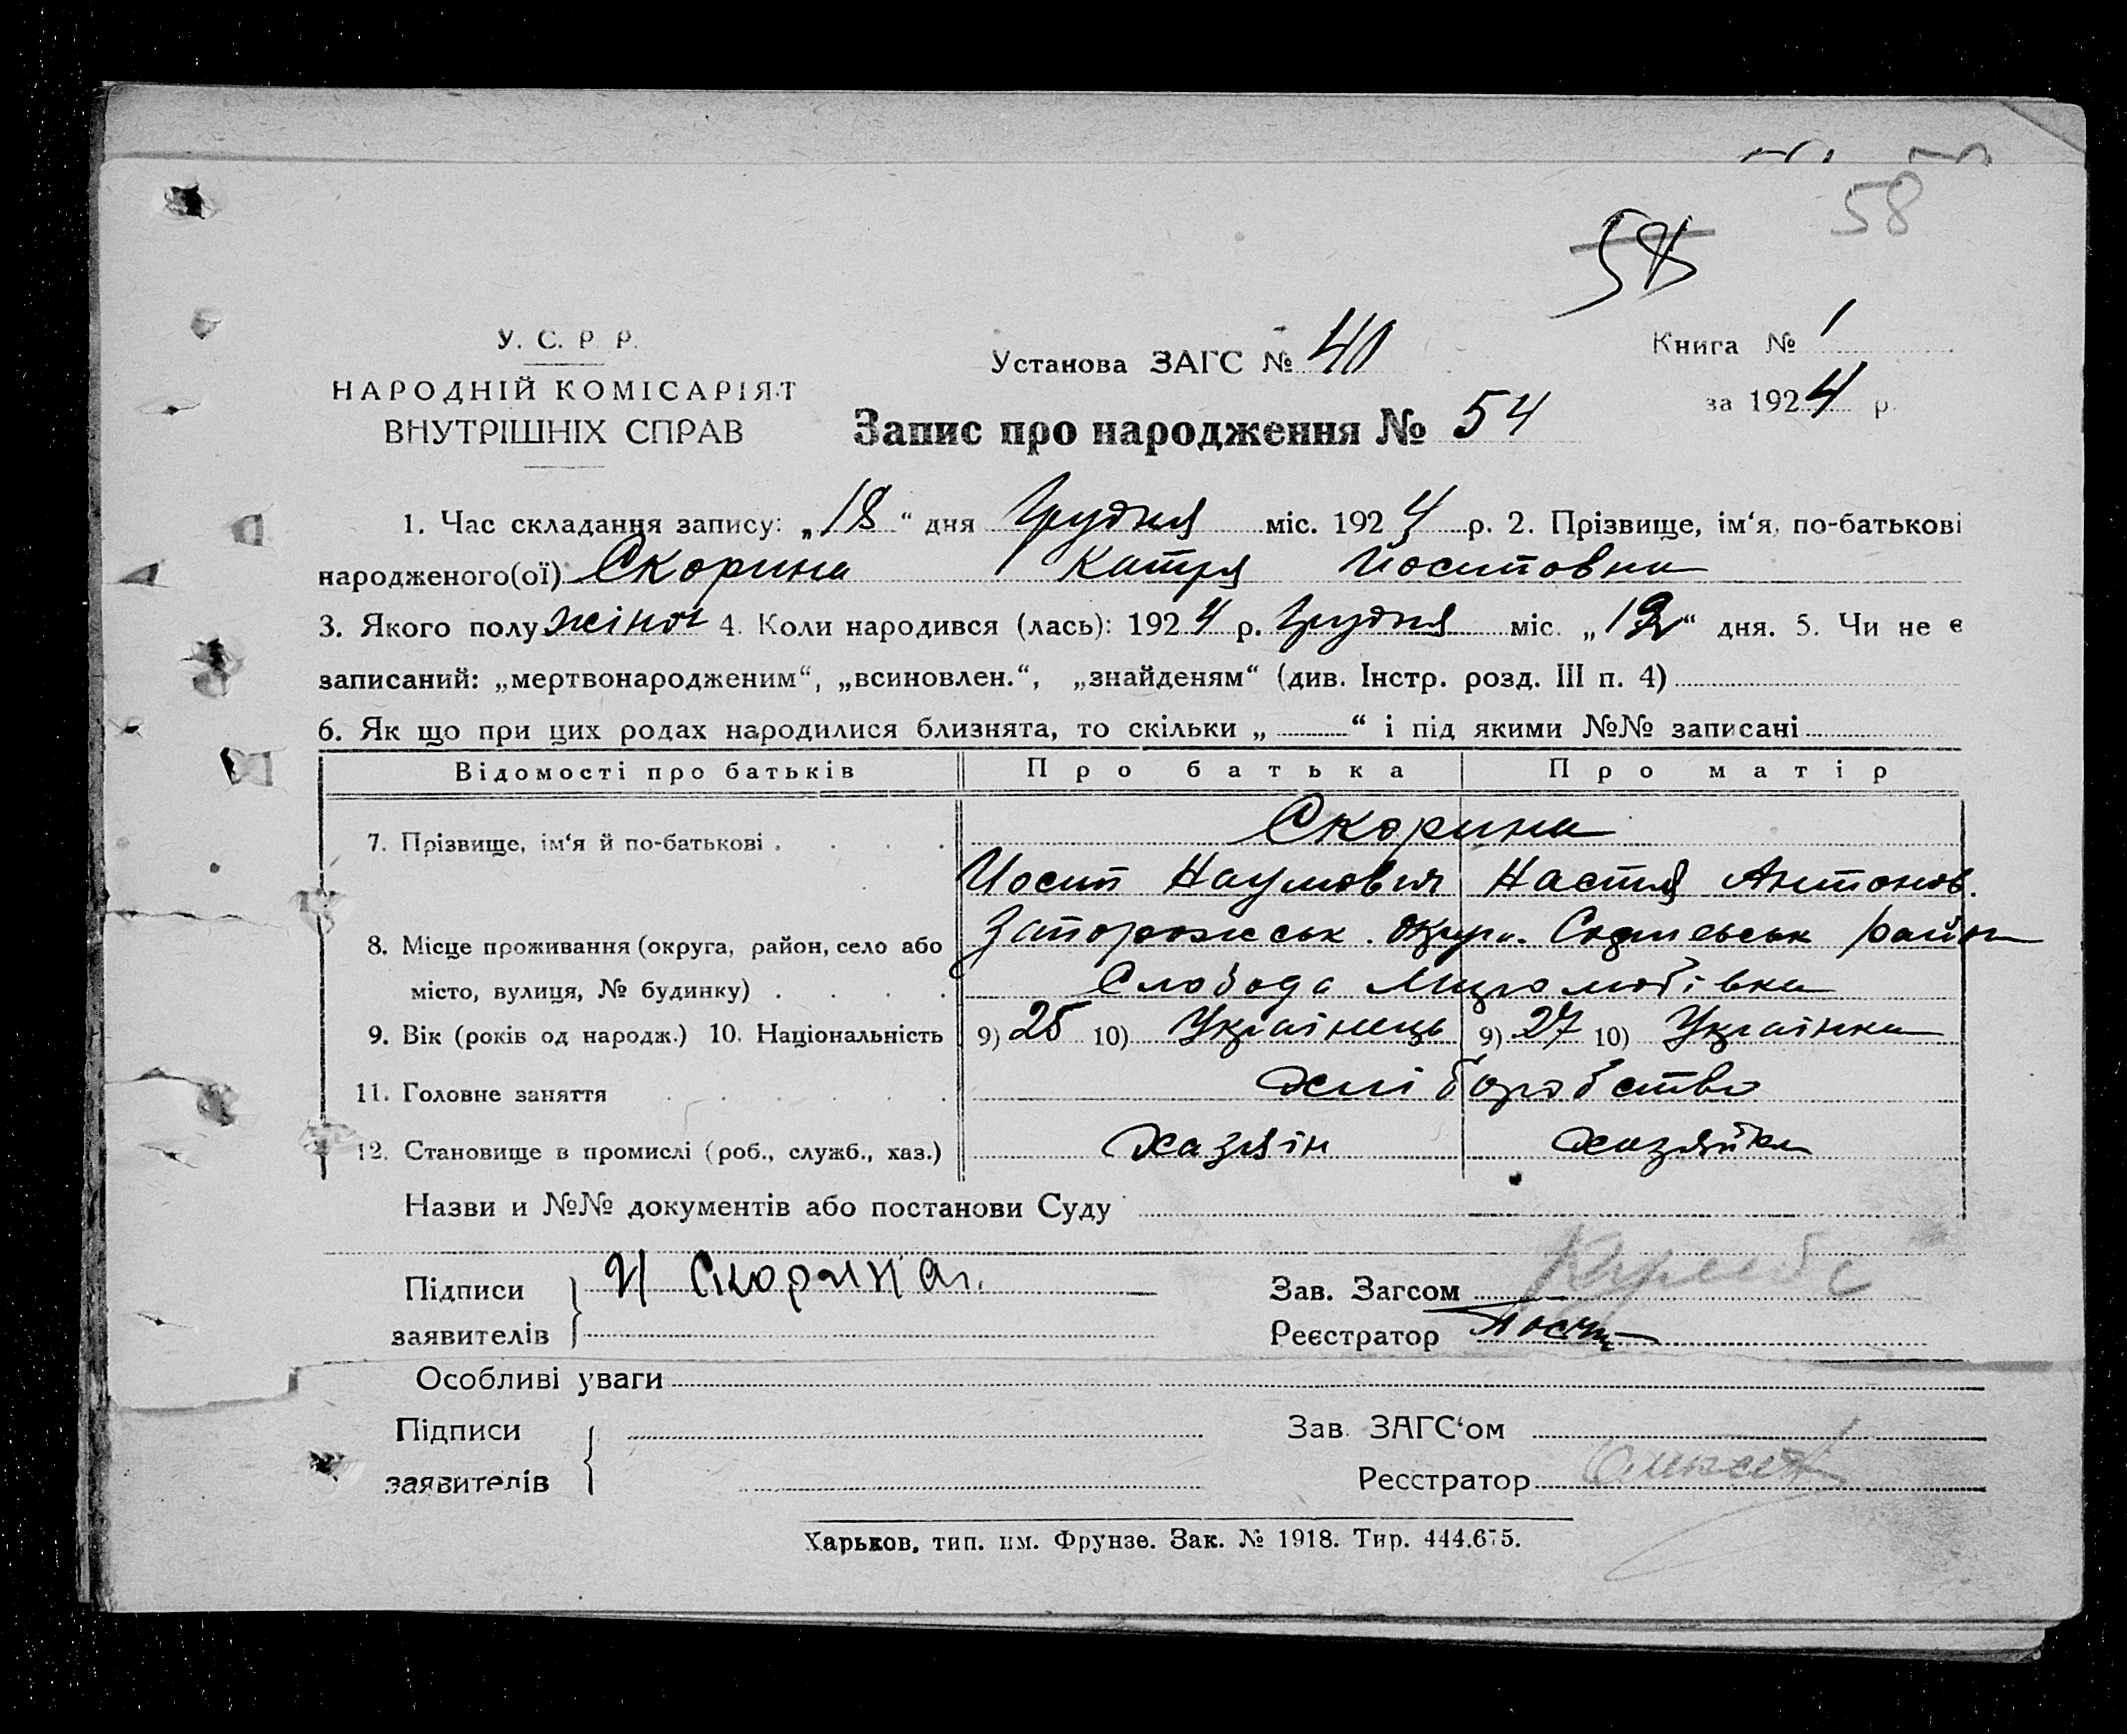 58
58
У. С. Р Р.
НАРОДНІЙ КОМІСАРІЯТ
ВНУТРІШНІХ СПРАВ
Установа ЗАГС № 40
Книга № 1
за 1924 р.
Запис про народження № 54
1. Час складання запису: „18“ дня Грудня міс. 1924 р. 2. Прізвище, ім‘я, по-батькові
народженого(ої) Скорина Катря Йосиповна
3. Якого полу жіноч 4. Коли народився (лась): 1924 р. Грудня міс. „12“ дня. 5. Чи не є
записаний: „мертвонародженим“, „всиновлен.“, „знайденям“ (див. Інстр. розд. III п. 4)
6. Як що при цих родах народилися близнята, то скільки „ “ і під якими №№ записані
Відомості про батьків Про батька Про матір
7. Прізвище, ім‘я й по-батькові . Скорина
Йосип Наумович Настя Антонов.
8. Місце проживання (округа, район, село або Запорожськ. окру. район
місто, вулиця, № будинку) . Слобода Миролюбівка
9. Вік (років од народж.) 10. Національність 9) 25 10) Українець 9) 27 10) Українка
11. Головне заняття хліборобство
12. Становище в промислі (роб., служб., хаз.) хазяін хазяйка
Назви и №№ документів або постанови Суду
Підписи И Скорина Зав. Загсом
заявителів Реєстратор
Особливі уваги
Підписи Зав. ЗАГС‘ом
заявителів Реєстратор
Харьков, тип. им. Фрунзе. Зак. № 1918. Тир. 444.675.